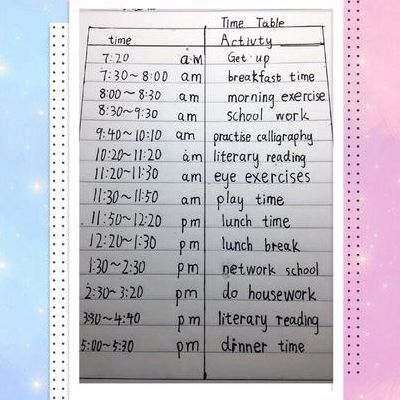 Time Table
time Activty
7:20 am Get up
7:30~8:00 am breakfast time
8:00~8:30 am morning exercise
8:30~9:30 am school work
9:40~10:10 am practise calligraphy
10:20~11:20 am literary reading
11:20~11:30 am eye exercises
11:30~11:50 am play time
11:50~12:20 pm lunch time
12:20~1:30 pm lunch break
1:30~2:30 pm network school
2:30~3:20 pm do housework
3:30~4:40 pm literary reading
5:00~5:30 pm dinner time